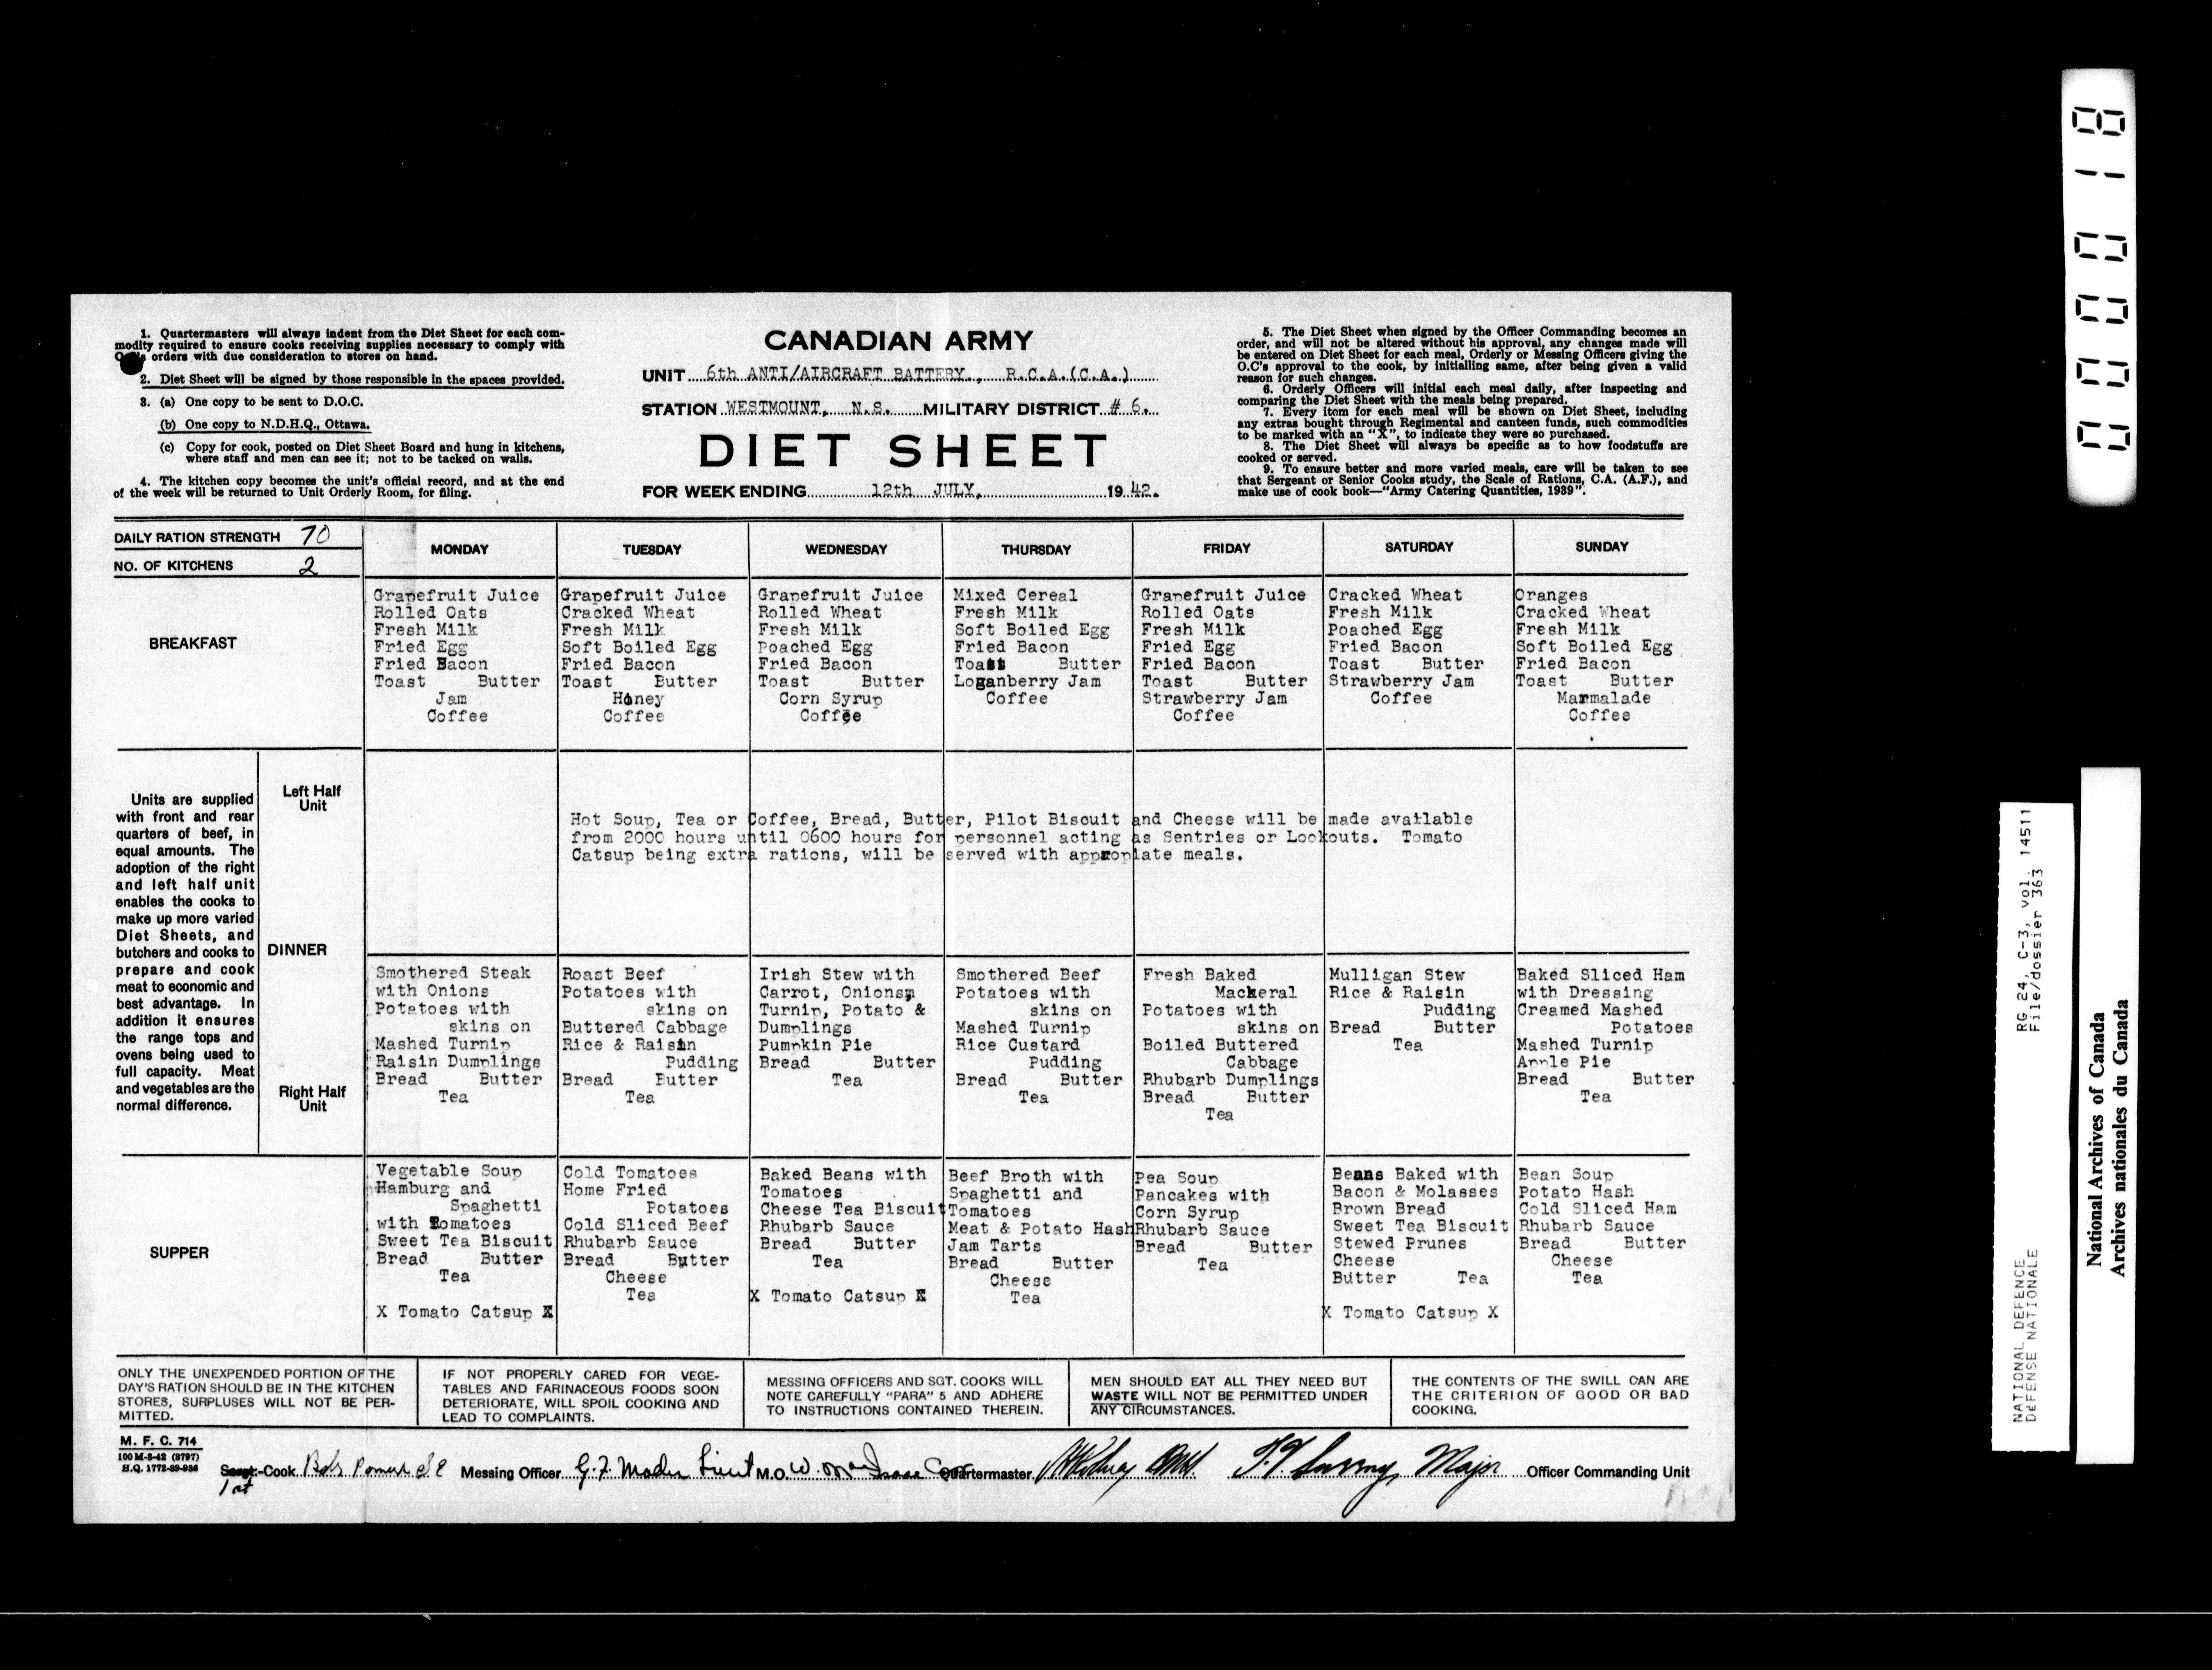 1. Quartermasters will always indent from the Diet Sheet for each com-
modity required to ensure cooks receiving supplies necessary to comply with
orders with due consideration to stores on hand.
2. Diet Sheet will be signed by those responsible in the spaces provided.
3. (a) One copy to be sent to D.O.C.
(b) One copy to N.D.H.Q., Ottawa.
(c) Copy for cook, posted on Diet Sheet Board and hung in kitchens,
where staff and men can see it; not to be tacked on walls.
4. The kitchen copy becomes the unit's official record, and at the end
of the week will be returned to Unit Orderly Room, for filing.
CANADIAN ARMY
UNIT 6th ANTI/AIRCRAFT BATTERY., R.C.A.(C.A.)
STATION WESTMOUNT, N.S. MILITARY DISTRICT # 6.
DIET SHEET
FOR WEEK ENDING 12th JULY, 19 42.
5. The Diet Sheet when signed by the Officer Commanding becomes an
order, and will not be altered without his approval, any changes made will
be entered on Diet Sheet for each meal, Orderly or Messing Officers giving the
O.C's approval to the cook, by initialling same, after being given a valid
reason for such changes.
6. Orderly Officers will initial each meal daily, after inspecting and
comparing the Diet Sheet with the meals being prepared.
7. Every item for each meal will be shown on Diet Sheet, including
any extras bought through Regimental and canteen funds, such commodities
to be marked with an "X", to indicate they were so purchased.
8. The Diet Sheet will always be specific as to how foodstuffs are
cooked or served.
9. To ensure better and more varied meals, care will be taken to see
that Sergeant or Senior Cooks study, the Scale of Rations, C.A. (A.F.), and
make use of cook book—"Army Catering Quantities, 1939".
DAILY RATION STRENGTH 70
NO. OF KITCHENS 2
MONDAY TUESDAY WEDNESDAY THURSDAY FRIDAY SATURDAY SUNDAY
BREAKFAST
Grapefruit Juice
Rolled Oats
Fresh Milk
Fried Egg
Fried Bacon
Toast Butter
Jam
Coffee
Grapefruit Juice
Cracked Wheat
Fresh Milk
Soft Boiled Egg
Fried Bacon
Toast Butter
Honey
Coffee
Grapefruit Juice
Rolled Wheat
Fresh Milk
Poached Egg
Fried Bacon
Toast Butter
Corn Syrup
Coffee
Mixed Cereal
Fresh Milk
Soft Boiled Egg
Fried Bacon
Toast Butter
Loganberry Jam
Coffee
Grapefruit Juice
Rolled Oats
Fresh Milk
Fried Egg
Fried Bacon
Toast Butter
Strawberry Jam
Coffee
Cracked Wheat
Fresh Milk
Poached Egg
Fried Bacon
Toast Butter
Strawberry Jam
Coffee
Oranges
Cracked Wheat
Fresh Milk
Soft Boiled Egg
Fried Bacon
Toast Butter
Marmalade
Coffee
Units are supplied
with front and rear
quarters of beef, in
equal amounts. The
adoption of the right
and left half unit
enables the cooks to
make up more varied
Diet Sheets, and
butchers and cooks to
prepare and cook
meat to economic and
best advantage. In
addition it ensures
the range tops and
ovens being used to
full capacity. Meat
and vegetables are the
normal difference.
Left Half
Unit
DINNER
Right Half
Unit
Hot Soup, Tea or Coffee, Bread, Butter, Pilot Biscuit and Cheese will be made available
from 2000 hours until 0600 hours for personnel acting as Sentries or Lookouts. Tomato
Catsup being extra rations, will be served with appropiate meals.
Smothered Steak
with Onions
Potatoes with
skins on
Mashed Turnip
Raisin Dumplings
Bread Butter
Tea
Roast Beef
Potatoes with
skins on
Buttered Cabbage
Rice & Raisin
Pudding
Bread Butter
Tea
Irish Stew with
Carrot, Onions,
Turnip, Potato &
Dumplings
Pumpkin Pie
Bread Butter
Tea
Smothered Beef
Potatoes with
skins on
Mashed Turnip
Rice Custard
Pudding
Bread Butter
Tea
Fresh Baked
Mackeral
Potatoes with
skins on
Boiled Buttered
Cabbage
Rhubarb Dumplings
Bread Butter
Tea
Mulligan Stew
Rice & Raisin
Pudding
Bread Butter
Tea
Baked Sliced Ham
with Dressing
Creamed Mashed
Potatoes
Mashed Turnip
Apple Pie
Bread Butter
Tea
SUPPER
Vegetable Soup
Hamburg and
Spaghetti
with Tomatoes
Sweet Tea Biscuit
Bread Butter
Tea
X Tomato Catsup X
Cold Tomatoes
Home Fried
Potatoes
Cold Sliced Beef
Rhubarb Sauce
Bread Butter
Cheese
Tea
Baked Beans with
Tomatoes
Cheese Tea Biscuit
Rhubarb Sauce
Bread Butter
Tea
X Tomato Catsup X
Beef Broth with
Spaghetti and
Tomatoes
Meat & Potato Hash
Jam Tarts
Bread Butter
Cheese
Tea
Pea Soup
Pancakes with
Corn Syrup
Rhubarb Sauce
Bread Butter
Tea
Beans Baked with
Bacon & Molasses
Brown Bread
Sweet Tea Biscuit
Stewed Prunes
Cheese
Butter Tea
X Tomato Catsup X
Bean Soup
Potato Hash
Cold Sliced Ham
Rhubarb Sauce
Bread Butter
Cheese
Tea
ONLY THE UNEXPENDED PORTION OF THE
DAY'S RATION SHOULD BE IN THE KITCHEN
STORES, SURPLUSES WILL NOT BE PER-
MITTED.
IF NOT PROPERLY CARED FOR VEGE-
TABLES AND FARINACEOUS FOODS SOON
DETERIORATE, WILL SPOIL COOKING AND
LEAD TO COMPLAINTS.
MESSING OFFICERS AND SGT. COOKS WILL
NOTE CAREFULLY "PARA" 5 AND ADHERE
TO INSTRUCTIONS CONTAINED THEREIN.
MEN SHOULD EAT ALL THEY NEED BUT
WASTE WILL NOT BE PERMITTED UNDER
ANY CIRCUMSTANCES.
THE CONTENTS OF THE SWILL CAN ARE
THE CRITERION OF GOOD OR BAD
COOKING.
M. F. C. 714
100 M-3-42 (3797)
H.Q. 1772-39-936
Sergt.-Cook Messing Officer Lieut M.O. W. Quartermaster Major Officer Commanding Unit
1st
000018
NATIONAL DEFENCE RG 24, C-3, vol. 14511
DÉFENSE NATIONALE File/dossier 363
National Archives of Canada
Archives nationales du Canada